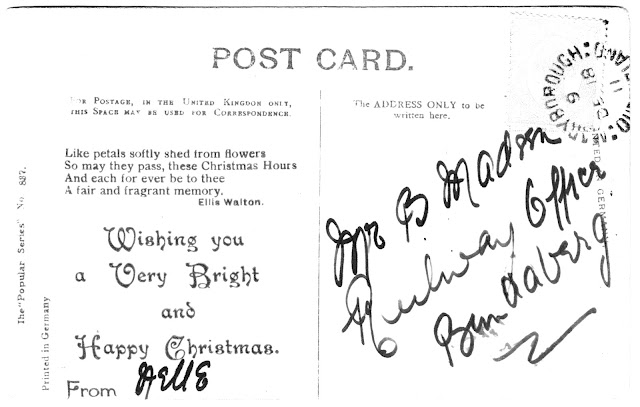 POST CARD.
FOR POSTAGE, IN THE UNITED KINGDOM ONLY,
THIS SPACE MAY BE USED FOR CORRESPONDENCE.
The ADDRESS ONLY to be
written here.
Like petals softly shed from flowers
So may they pass, these Christmas Hours
And each for ever be to thee
A fair and fragrant memory.
Ellis Walton.
Wishing you
a Very Bright
and
Happy Christmas.
From Nelle
The "Popular Series" No. 827.
Printed in Germany
Mr B Madsen
Railway Officer
Bundaberg
MARYBOROUGH
PRINTED IN GERMANY